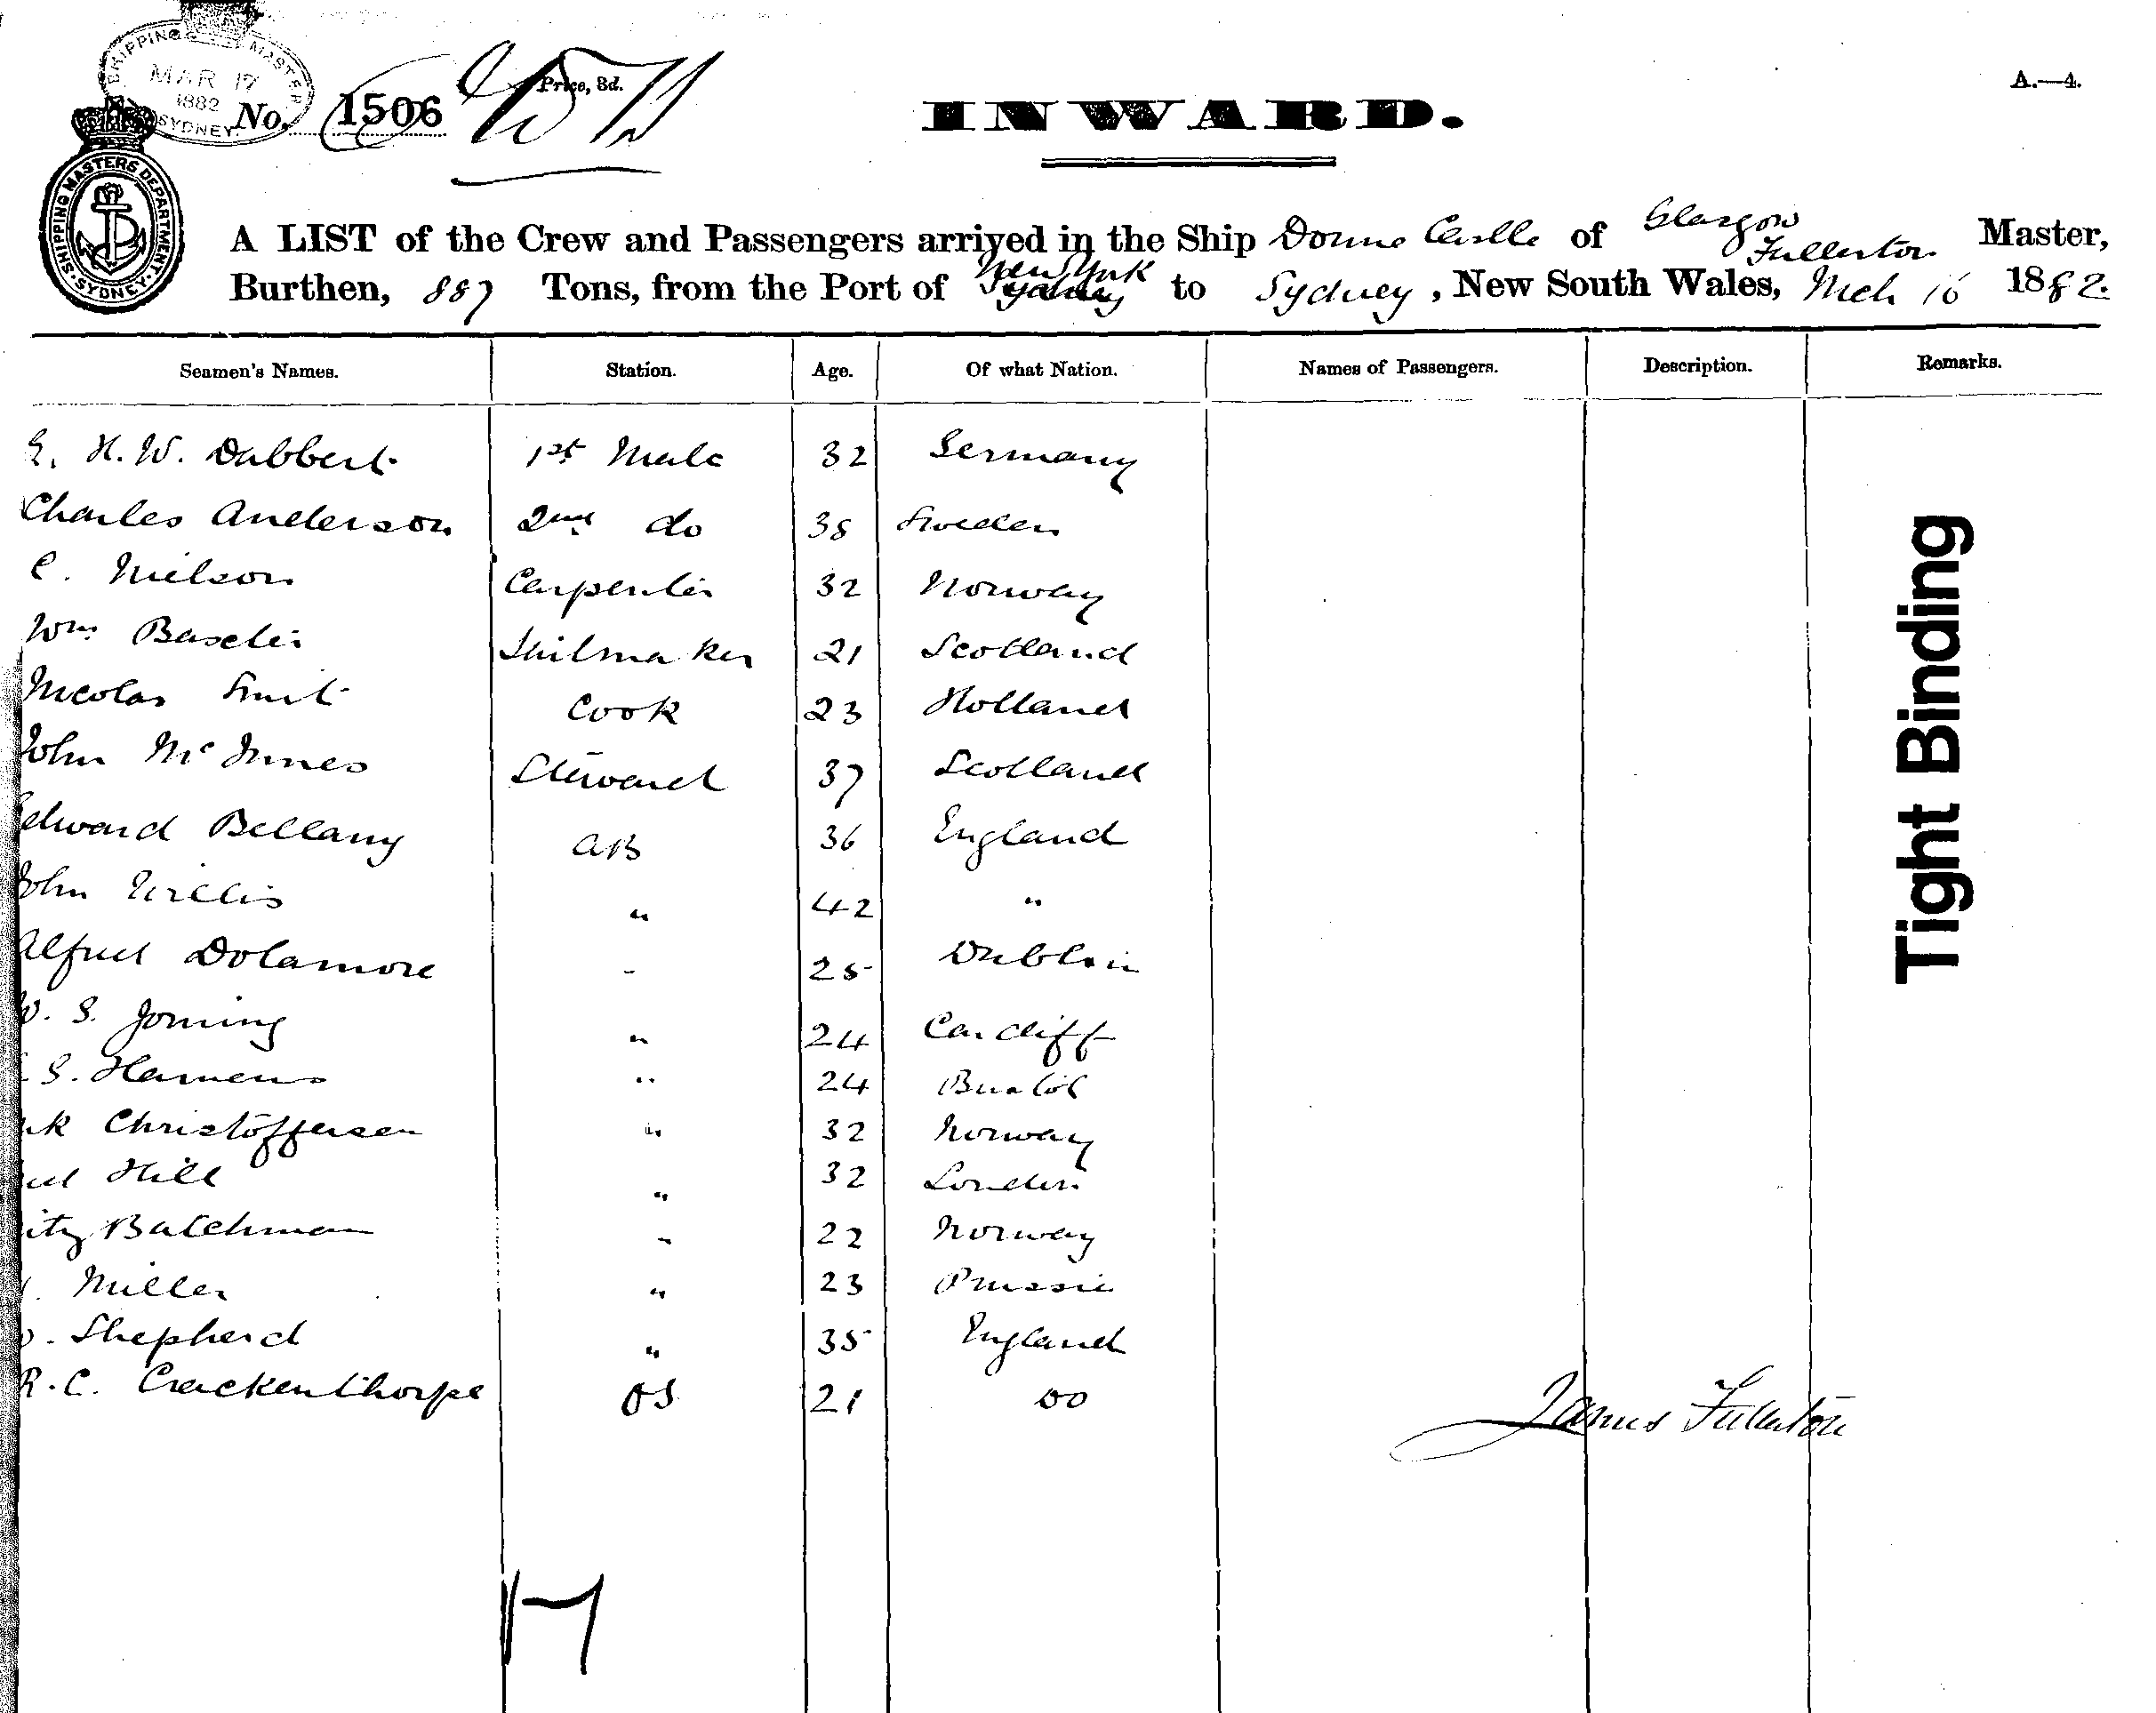 SHIPPING MASTER
MAR 17
1882
SYDNEY
No. 1506
Price, 3d.
INWARD.
A.—4.
SHIPPING MASTERS DEPARTMENT. SYDNEY.
A LIST of the Crew and Passengers arrived in the Ship Doune Castle of Glasgow Fullerton Master,
Burthen, 887 Tons, from the Port of New York to Sydney, New South Wales, Mch 16 1882.
Seamen's Names. Station. Age. Of what Nation. Names of Passengers. Description. Remarks.
H. W. Dabbert 1st Mate 32 Germany
Charles Anderson 2nd do 38 Sweden
C. Nielson Carpenter 32 Norway
Wm Baxter Sailmaker 21 Scotland
Nicolas Smit Cook 23 Holland
John McInnes Steward 37 Scotland
Edward Bellamy AB 36 England
John Willis " 42 "
Alfred Dolamore " 25 Dublin
W. S. Joming " 24 Cardiff
S. Hamens " 24 Bristol
Christoffersen " 32 Norway
Hill " 32 London
itz Batchman " 22 Norway
Miller " 23 Prussia
Shepherd " 35 England
R. C. Crackenthorpe OS 21 DO
James Fullerton
17
Tight Binding